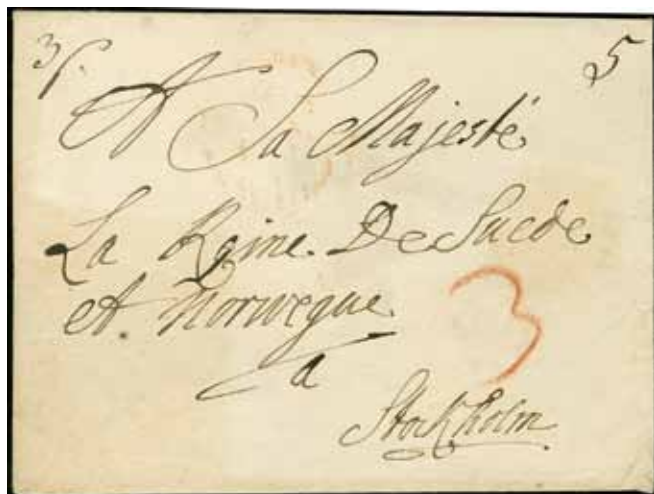 3/. 5
A Sa Majesté
La Reine. De Suede
et. Norwegue.
a
Stockholm
3